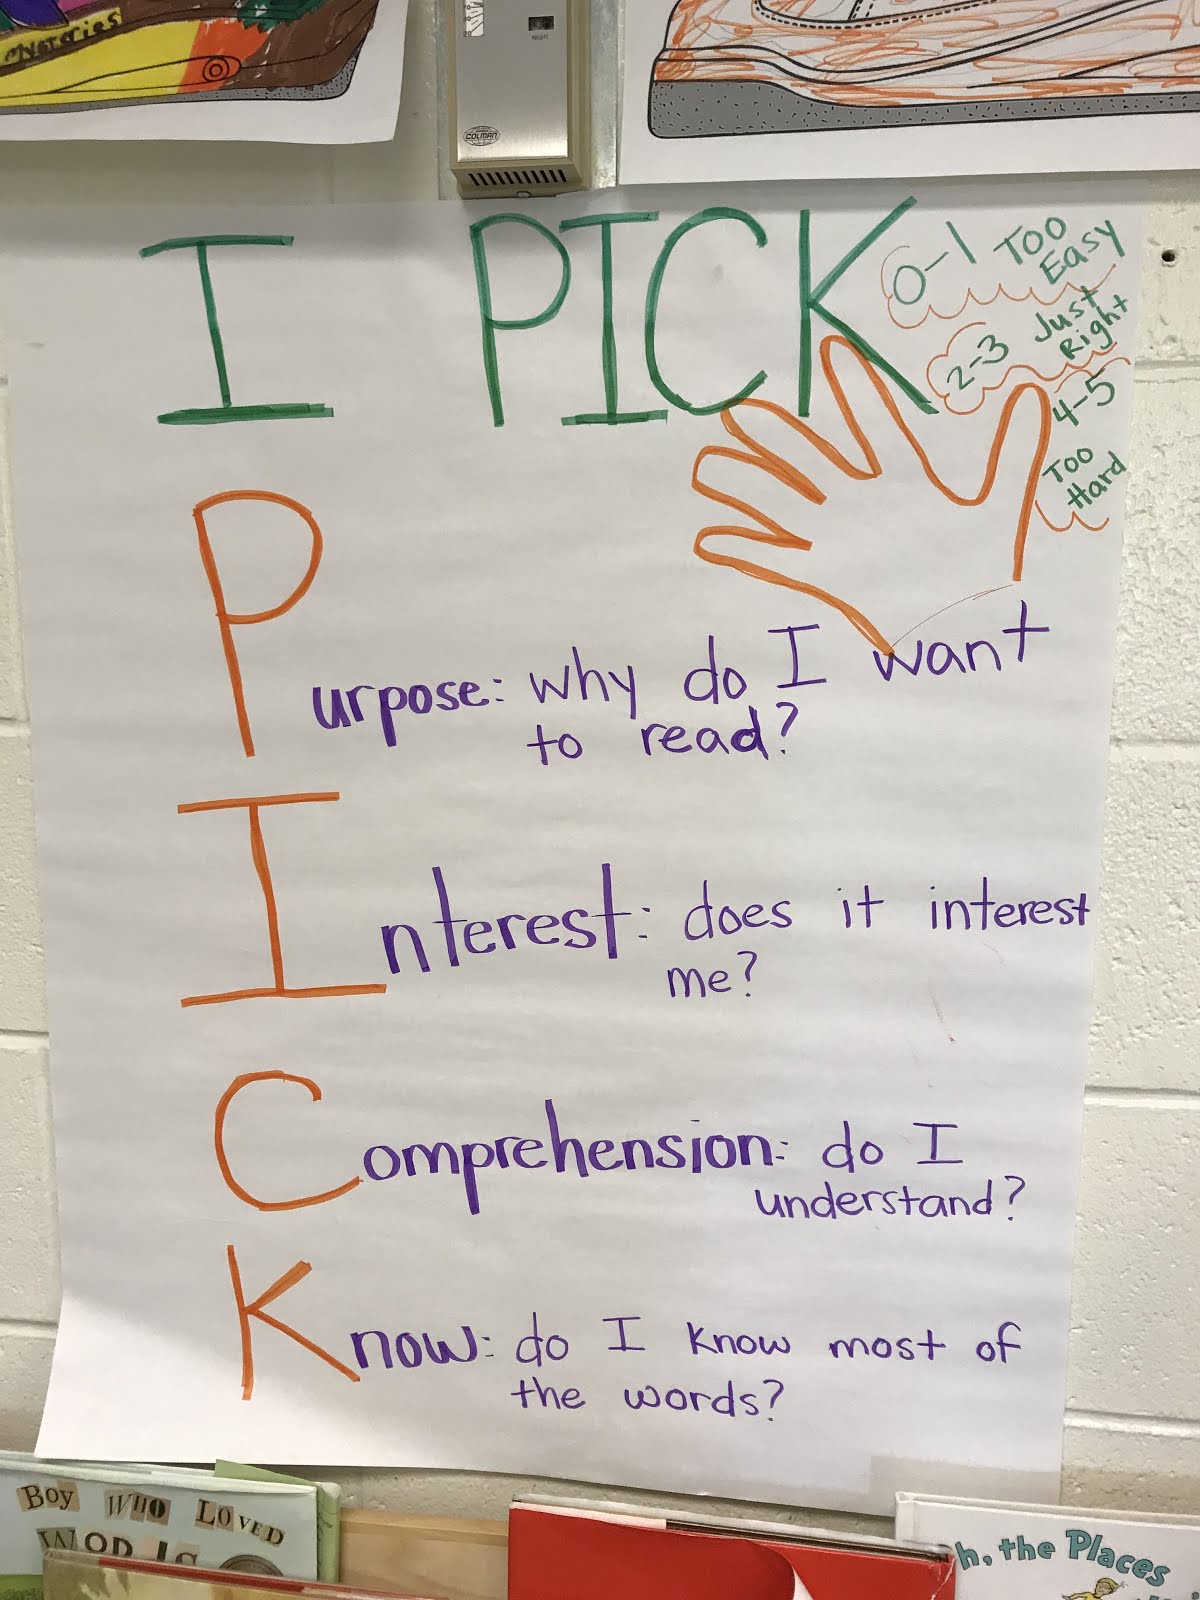 mysteries
NIGHT
COLMAN
I PICK
0-1 Too
Easy
2-3 Just
Right
4-5
Too
Hard
Purpose: why do I want
to read?
Interest: does it interest
me?
Comprehension: do I
understand?
Know: do I know most of
the words?
BOY WHO LOVED
WORDS
Oh, the Places